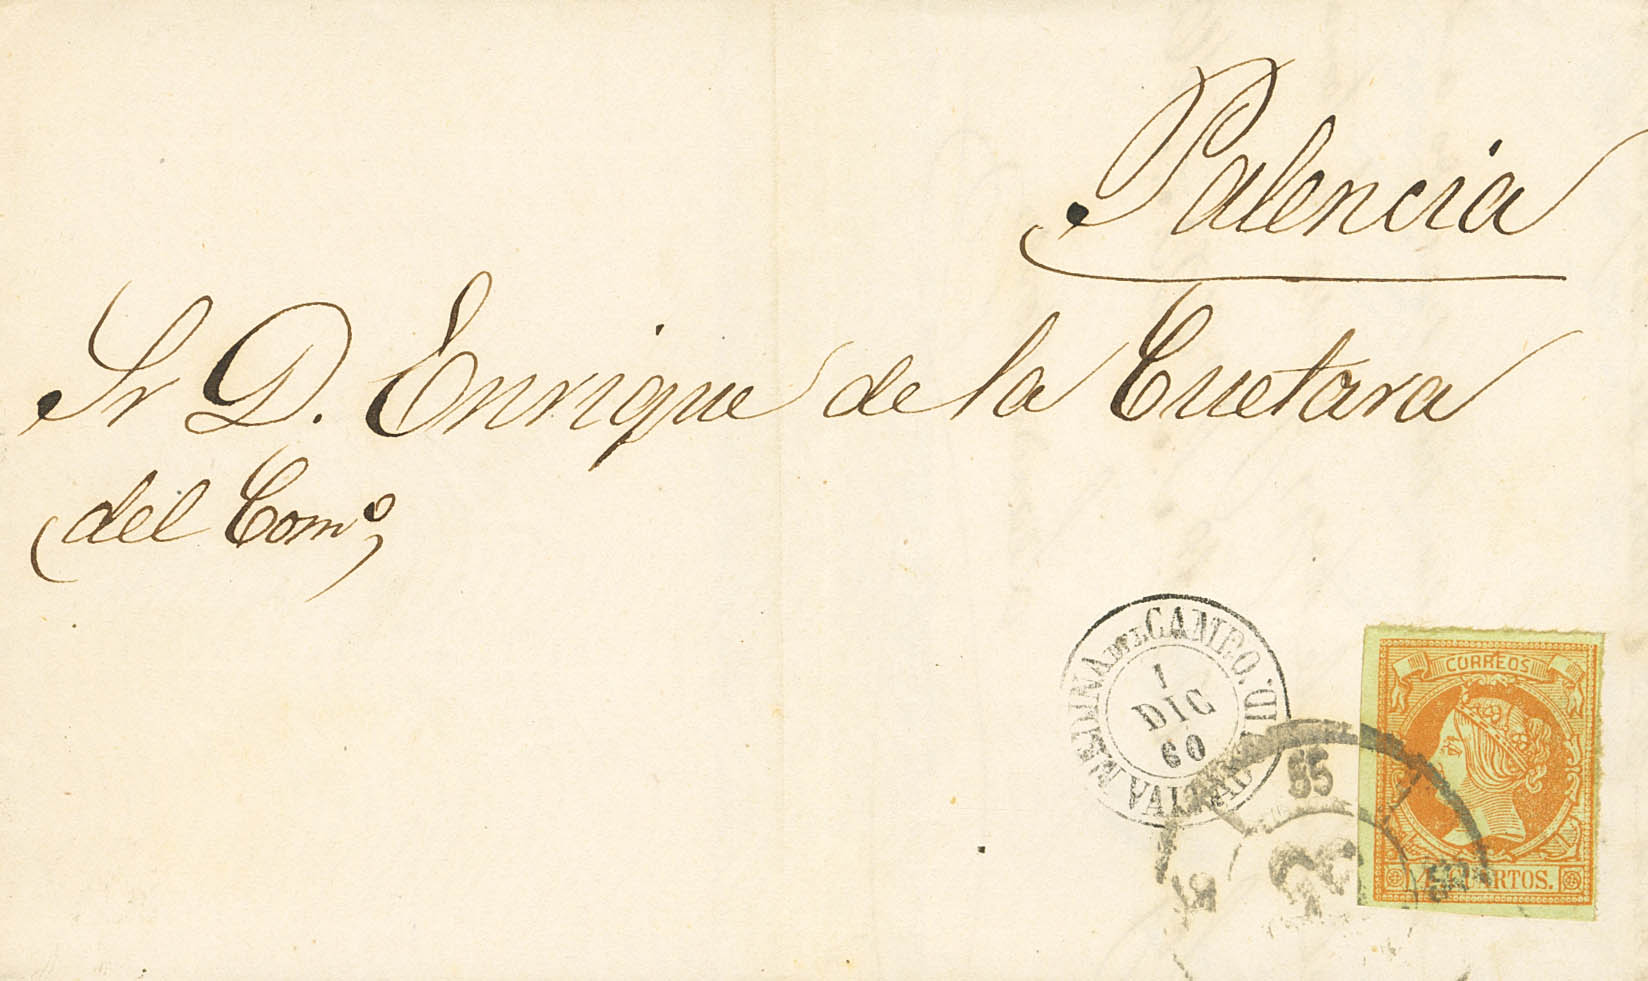 Palencia
Sr D. Enrique de la Cuetara
del Comº
MEDINA DEL CAMPO.
1
DIC
60
CORREOS
CUARTOS.